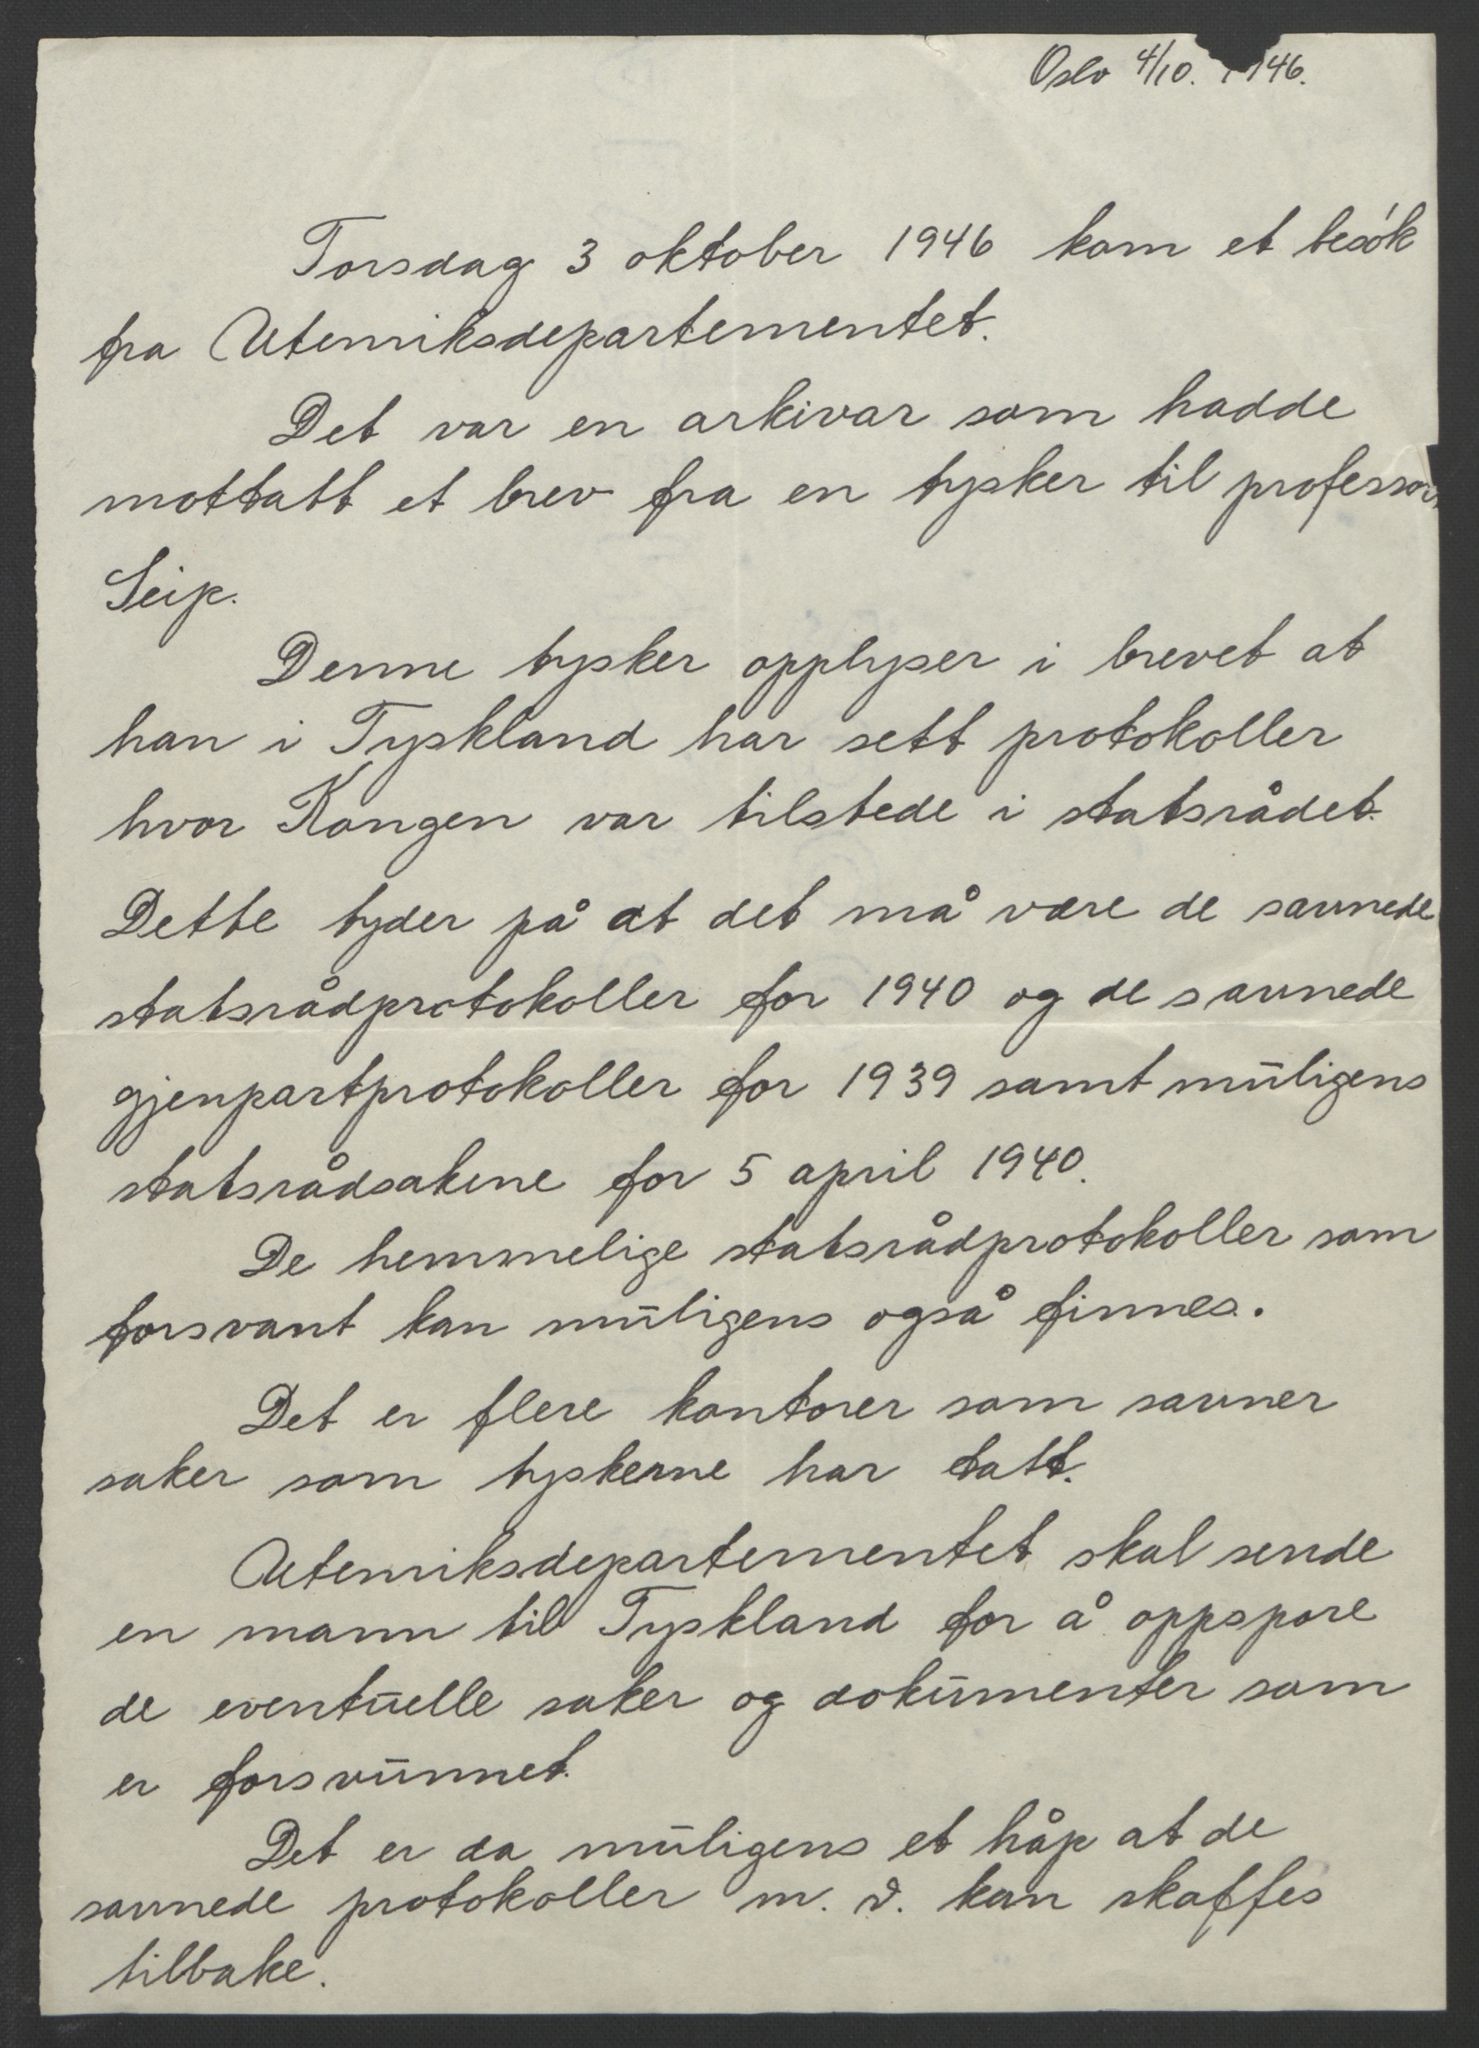 Oslo 4/10. 1946.
Torsdag 3 oktober 1946 kom et besök
fra Utenriksdepartementet.
Det var en arkivar som hadde
mottatt et brev fra en tysker til professor
Seip.
Denne tysker opplyser i brevet at
han i Tyskland har sett protokoller
hvor Kongen var tilstede i statsrådet.
Dette tyder på at det må være de savnede
statsrådprotokoller for 1940 og de savnede
gjenpartprotokoller for 1939 samt muligens
statsrådsakene for 5 april 1940.
De hemmelige statsrådprotokoller som
forsvant kan muligens også finnes.
Det er flere kontorer som savner
saker som tyskerne har tatt.
Utenriksdepartementet skal sende
en mann til Tyskland for å oppspore
de eventuelle saker og dokumenter som
er forsvunnet.
Det er da muligens et håp at de
savnede protokoller m. v. kan skaffes
tilbake.